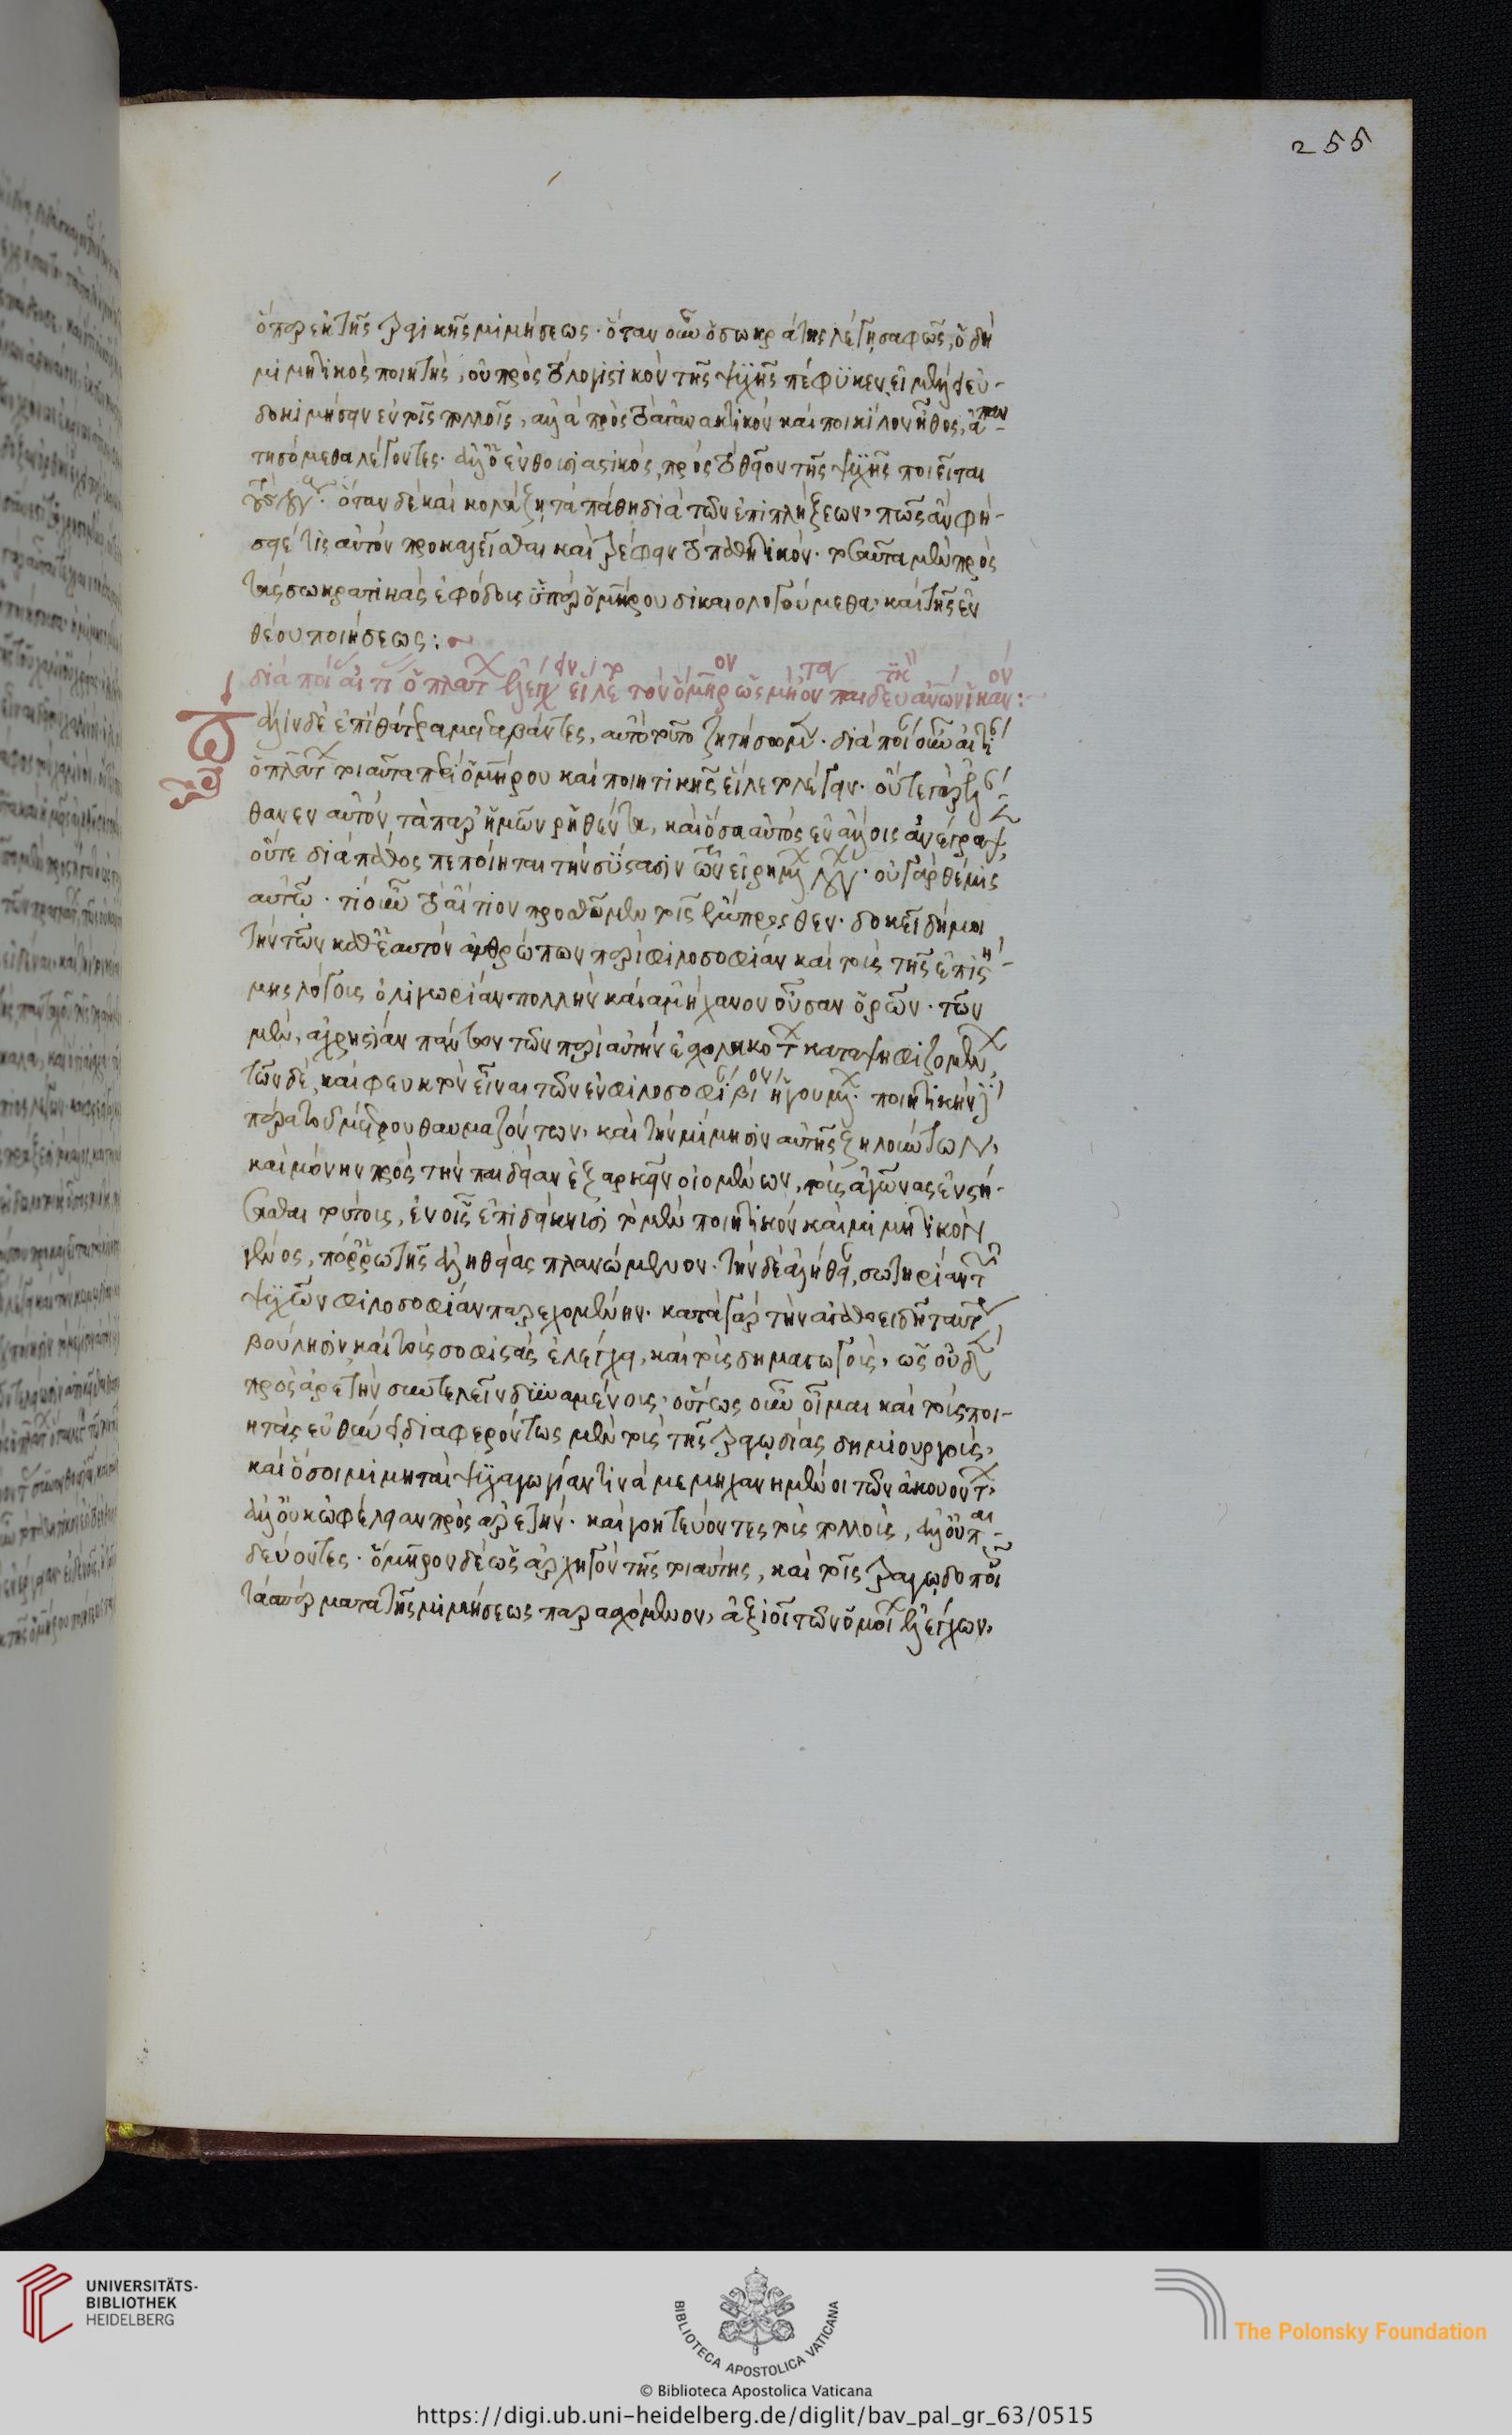 255
ὅπερ ἐκ τῆς τραγικῆς μιμήσεως· ὅταν οὖν ὁ σωκράτης λέγῃ σαφῶς, ὁ δὴ
μιμητικὸς ποιητὴς, οὐ πρὸς τὸ λογιστικὸν τῆς ψυχῆς πέφυκεν, εἰ μὴ εὐ-
δοκιμήσειν ἐν τοῖς πολλοῖς, ἀλλὰ πρὸς τὸ ἀγανακτικόν καὶ ποικίλον ἦθος, ἀπαν-
τησόμεθα λέγοντες· ἀλλ' ὁ ἐνθουσιαστικὸς, πρὸς τὸ θεῖον τῆς ψυχῆς ποιεῖται
ὅταν δὲ καὶ κολάζῃ τὰ πάθη διὰ τῶν ἐπιπλήξεων, πῶς ἂν φή-
σειέ τις αὐτὸν προκαλεῖσθαι καὶ τρέφειν τὸ παθητικόν· τοσαῦτα μὲν πρὸς
τὰς σωκρατικὰς ἐφόδους ὑπὲρ ὁμήρου δικαιολογούμεθα, καὶ τῆς ἐν
θέου ποιήσεως:
διὰ ποίαν αἰτίαν ὁ πλάτων ἐλέγχειν εἵλετο τὸν ὅμηρον ὡς μὴ ὄντα παιδεύειν ἀνθρώπους ἱκανόν:
ἀλλ' ἴνδε ἐπὶ θάτερα μεταβάντες, αὐτὸ τοῦτο ζητήσωμεν· διὰ ποίαν οὖν αἰτίαν
ὁ πλάτων τοιαῦτα περὶ ὁμήρου καὶ ποιητικῆς εἵλετο λέγειν· οὔτε γὰρ ἐλάν-
θανεν αὐτὸν τὰ παρ' ἡμῶν ῥηθέντα, καὶ ὅσα αὐτὸς ἐν ἄλλοις ἀνέγραψεν,
οὔτε διὰ πάθος πεποίηται τὴν σύστασιν τῶν εἰρημένων λόγων· οὐ γὰρ θέμις
αὐτῷ· τί οὖν τὸ αἴτιον προθῶμεν τοῖς ἔμπροσθεν· δοκεῖ δή μοι
τὴν τῶν καθ' ἑαυτὸν ἀνθρώπων περὶ φιλοσοφίαν καὶ τοὺς τῆς ἐπιστή-
μης λόγους ὀλιγωρίαν πολλὴν καὶ ἀμήχανον οὖσαν ὁρῶν· τῶν
μὲν, ἀχρηστίαν πάντων τῶν περὶ αὐτὴν ἐσχολακότων καταψηφιζομένων,
τῶν δὲ, καὶ φευκτὸν εἶναι τὸν ἐν φιλοσοφίᾳ βίον ἡγουμένων· ποιητικὴν δὲ
πέρα τοῦ μέτρου θαυμαζόντων, καὶ τὴν μίμησιν αὐτῆς ζηλούντων,
καὶ μόνην πρὸς τὴν παιδείαν ἐξαρκεῖν οἰομένων, τοὺς ἀγῶνας ἐνστή-
σασθαι τούτοις, ἐν οἷς ἐπιδείκνυσι τὸ μὲν ποιητικὸν καὶ μιμητικὸν
γένος, πόρρω τῆς ἀληθείας πλανώμενον· τὴν δὲ ἀληθῆ, σωτηρίαν τῶν
ψυχῶν φιλοσοφίαν παρεχομένην· κατὰ γὰρ τὴν ἀγαθοειδῆ ταύτην
βούλησιν, καὶ τοὺς σοφιστὰς ἐλέγχει, καὶ τοὺς δημαγωγοὺς, ὡς οὐδὲν
πρὸς ἀρετὴν συντελεῖν δυναμένους· οὕτως οὖν οἶμαι καὶ τοὺς ποι-
ητὰς εὐθύνει, διαφερόντως μὲν τοὺς τῆς τραγῳδίας δημιουργοὺς,
καὶ ὅσοι μιμηταὶ ψυχαγωγίαν τινὰ μεμηχανημένοι τῶν ἀκουόντων,
ἀλλ' οὐκ ὠφέλειαν πρὸς ἀρετήν· καὶ γοητεύοντες τοὺς πολλοὺς, ἀλλ' οὐ παι-
δεύοντες· ὅμηρον δὲ ὡς ἀρχηγὸν τῆς τοιαύτης, καὶ τοῖς τραγῳδοποιοῖς
τὰ σπέρματα τῆς μιμήσεως παρασχόμενον, ἀξιοῖ τῶν ὁμοίων ἐλέγχων,
UNIVERSITÄTS-
BIBLIOTHEK
HEIDELBERG
BIBLIOTECA APOSTOLICA VATICANA
The Polonsky Foundation
© Biblioteca Apostolica Vaticana
https://digi.ub.uni-heidelberg.de/diglit/bav_pal_gr_63/0515